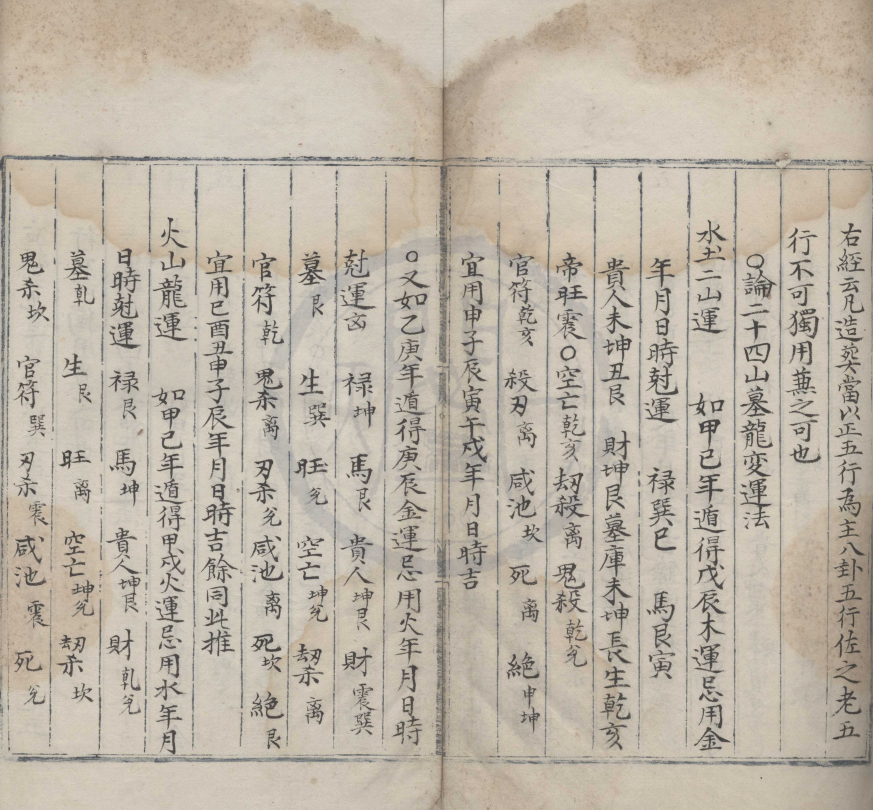 右經云凡造葬當以正五行為主八卦五行佐之老五
行不可獨用兼之可也
○論二十四山墓龍变運法
水土二山運 如甲己年遁得戊辰木運忌用金
年月日時尅運 禄巽巳 馬艮寅
貴人未坤丑艮 財坤艮墓庫未坤長生乾亥
帝旺震○空亡乾亥劫殺离鬼殺乾兊
官符乾亥 殺刃离 咸池坎 死离 絶申坤
宜用申子辰寅午戌年月日時吉
○又如乙庚年遁得庚辰金運忌用火年月日時
尅運 禄坤 馬艮 貴人坤艮 財震巽
墓艮 生巽 旺兊 空亡坤兊 劫杀离
官符乾 鬼杀离 刃杀兊 咸池离 死坎 絶艮
宜用巳酉丑申子辰年月日時吉餘同此推
火山龍運 如甲己年遁得甲戌火運忌用水年月
日時尅運 禄艮 馬坤 貴人坤艮 財乹兊
墓乹 生艮 旺离 空亡坤兊 劫杀坎
鬼杀坎 官符巽 刃杀震 咸池震 死兊